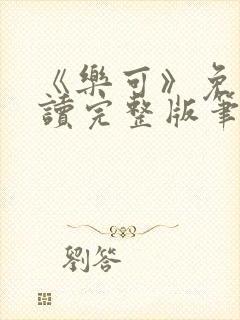 《樂可》免
讀完整版筆
劉答